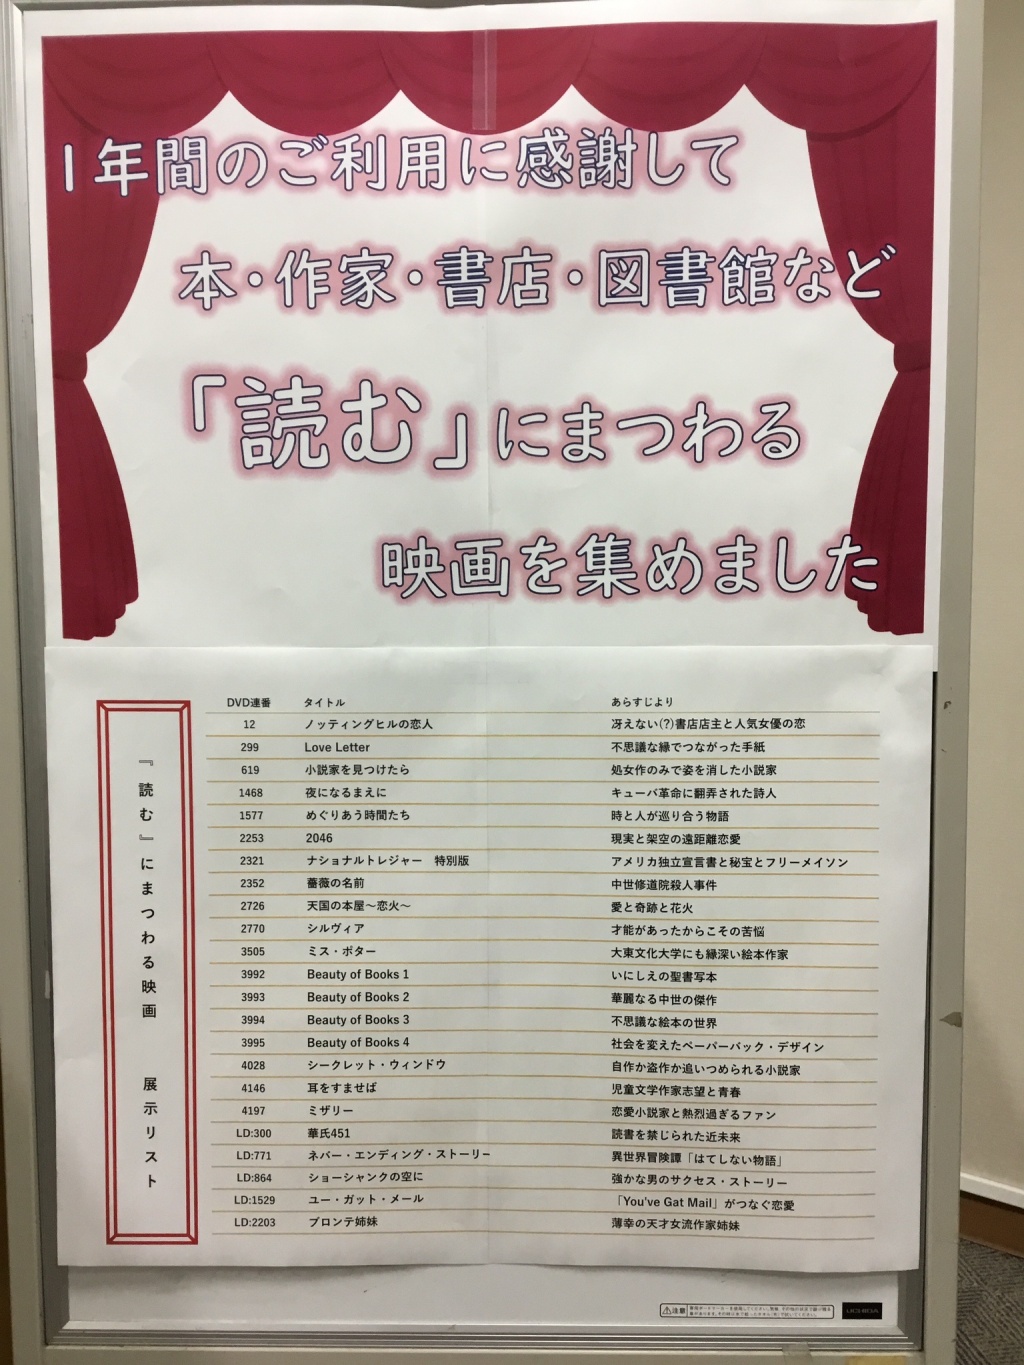 1年間のご利用に感謝して
本・作家・書店・図書館など
「読む」にまつわる
映画を集めました
『読む』にまつわる映画 展示リスト
DVD連番 タイトル あらすじより
12 ノッティングヒルの恋人 冴えない(?)書店店主と人気女優の恋
299 Love Letter 不思議な縁でつながった手紙
619 小説家を見つけたら 処女作のみで姿を消した小説家
1468 夜になるまえに キューバ革命に翻弄された詩人
1577 めぐりあう時間たち 時と人が巡り合う物語
2253 2046 現実と架空の遠距離恋愛
2321 ナショナルトレジャー 特別版 アメリカ独立宣言書と秘宝とフリーメイソン
2352 薔薇の名前 中世修道院殺人事件
2726 天国の本屋～恋火～ 愛と奇跡と花火
2770 シルヴィア 才能があったからこその苦悩
3505 ミス・ポター 大東文化大学にも縁深い絵本作家
3992 Beauty of Books 1 いにしえの聖書写本
3993 Beauty of Books 2 華麗なる中世の傑作
3994 Beauty of Books 3 不思議な絵本の世界
3995 Beauty of Books 4 社会を変えたペーパーバック・デザイン
4028 シークレット・ウィンドウ 自作か盗作か追いつめられる小説家
4146 耳をすませば 児童文学作家志望と青春
4197 ミザリー 恋愛小説家と熱烈過ぎるファン
LD:300 華氏451 読書を禁じられた近未来
LD:771 ネバー・エンディング・ストーリー 異世界冒険譚「はてしない物語」
LD:864 ショーシャンクの空に 強かな男のサクセス・ストーリー
LD:1529 ユー・ガット・メール 「You've Gat Mail」がつなぐ恋愛
LD:2203 ブロンテ姉妹 薄幸の天才女流作家姉妹
注意
UCHIDA